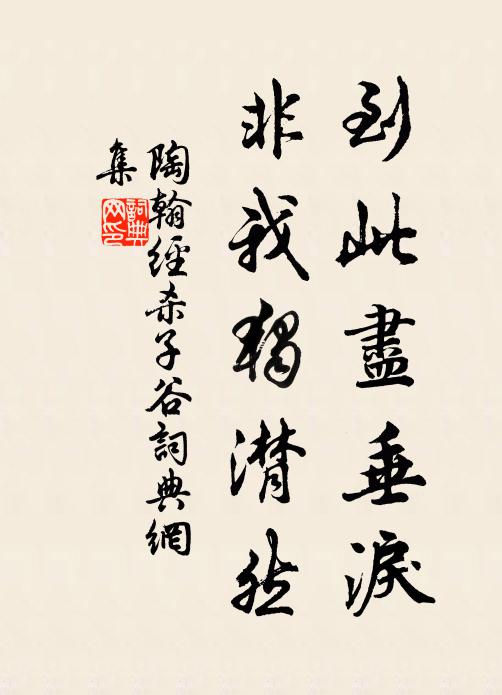 到此盡垂淚
非我獨潸然
陶翰經杀子谷詞典網
集
詞典
网印